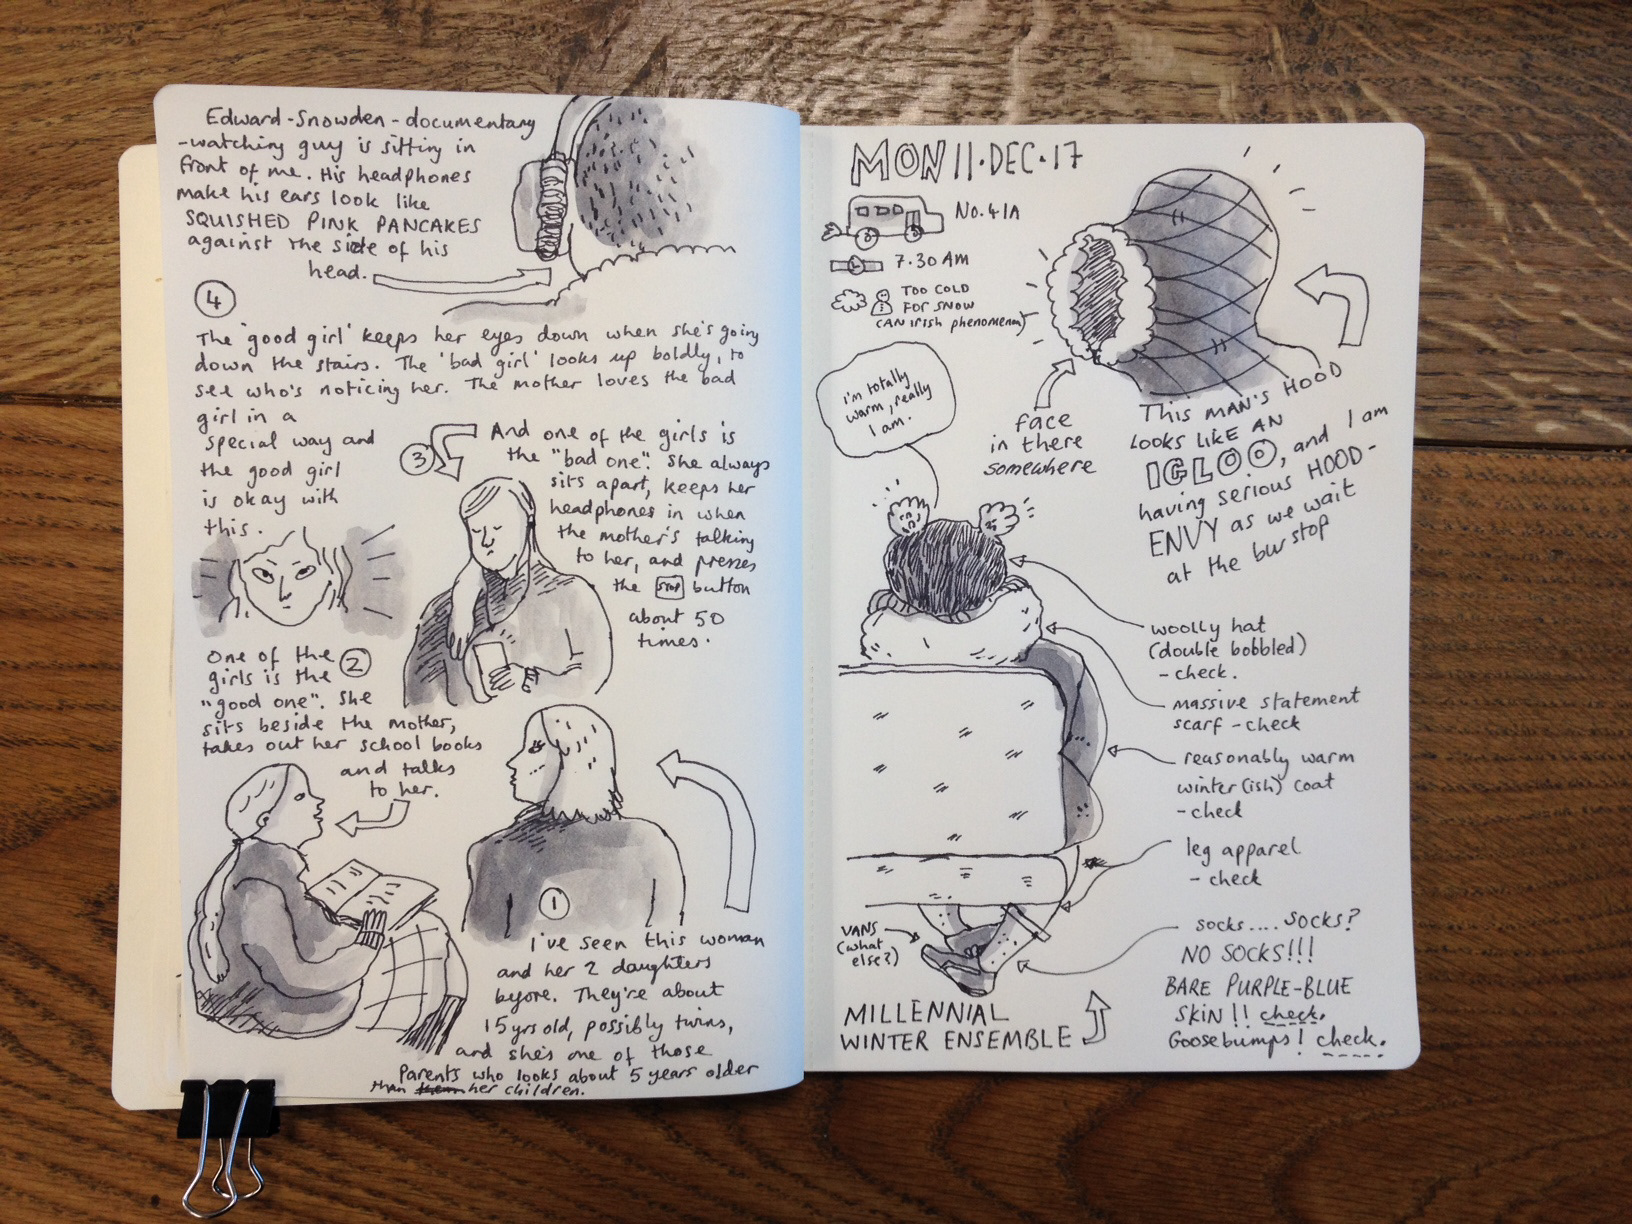 Edward-Snowden-documentary
-watching guy is sitting in
front of me. His headphones
make his ears look like
SQUISHED PINK PANCAKES
against the side of his
head.
4
The 'good girl' keeps her eyes down when she's going
down the stairs. The 'bad girl' looks up boldly, to
see who's noticing her. The mother loves the bad
girl in a
special way and
the good girl
is okay with
this.
3
And one of the girls is
the "bad one". She always
sits apart, keeps her
headphones in when
the mother's talking
to her, and presses
the STOP button
about 50
times.
One of the 2
girls is the
"good one". She
sits beside the mother,
takes out her school books
and talks
to her.
1
I've seen this woman
and her 2 daughters
before. They're about
15yrs old, possibly twins,
and she's one of those
parents who looks about 5 years older
than them her children.
MON 11.DEC.17
No.41A
7.30 AM
TOO COLD
FOR SNOW
(AN Irish phenomenon)
i'm totally
warm, really
I am.
face
in there
somewhere
This MAN'S HOOD
LOOKS LIKE AN
IGLOO, and I am
having serious HOOD-
ENVY as we wait
at the bus stop
woolly hat
(double bobbled)
- check.
massive statement
scarf - check
reasonably warm
winter(ish) coat
- check
leg apparel
- check
VANS
(what
else?)
socks.... socks?
NO SOCKS!!!
BARE PURPLE-BLUE
SKIN!! check.
Goosebumps! check.
MILLENNIAL
WINTER ENSEMBLE